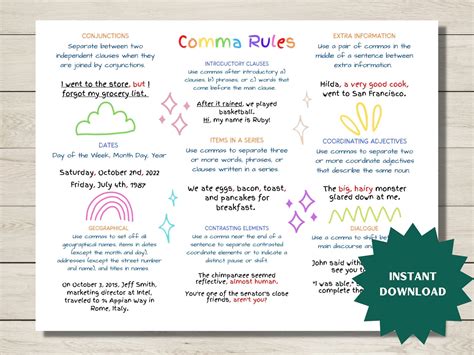 Comma Rules
CONJUNCTIONS
Separate between two
independent clauses when they
are joined by conjunctions.
I went to the store, but I
forgot my grocery list.
DATES
Day of the Week, Month Day, Year
Saturday, October 2nd, 2022
Friday, July 4th, 1987
GEOGRAPHICAL
Use commas to set off all
geographical names, items in
dates (except the month and
day), addresses (except the
street number and name), and
titles in names.
On October 3, 2015, Jeff Smith,
marketing director at Intel,
traveled to 14 Appian Way in
Rome, Italy.
INTRODUCTORY CLAUSES
Use commas after introductory a)
clauses, b) phrases, or c) words that
come before the main clause.
After it rained, we played
basketball.
Hi, my name is Ruby!
ITEMS IN A SERIES
Use commas to separate three
or more words, phrases, or
clauses written in a series.
We ate eggs, bacon, toast,
and pancakes for
breakfast.
CONTRASTING ELEMENTS
Use a comma near the end of a
sentence to separate contrasting
elements or to indicate a distinct
pause
The chimpanzee seemed
reflective, almost human.
You're one of the senator's close
friends, aren't you?
EXTRA INFORMATION
Use a pair of commas in the
middle of a sentence between
extra information.
Hilda, a very good cook,
went to San Francisco.
COORDINATING ADJECTIVES
Use commas to separate two
or more coordinate adjectives
that describe the same noun.
The big, hairy monster
glared down at me.
DIALOGUE
Use a comma to shift between
main discourse and
John said with
see you to
"I was able,"
complete the
INSTANT
DOWNLOAD